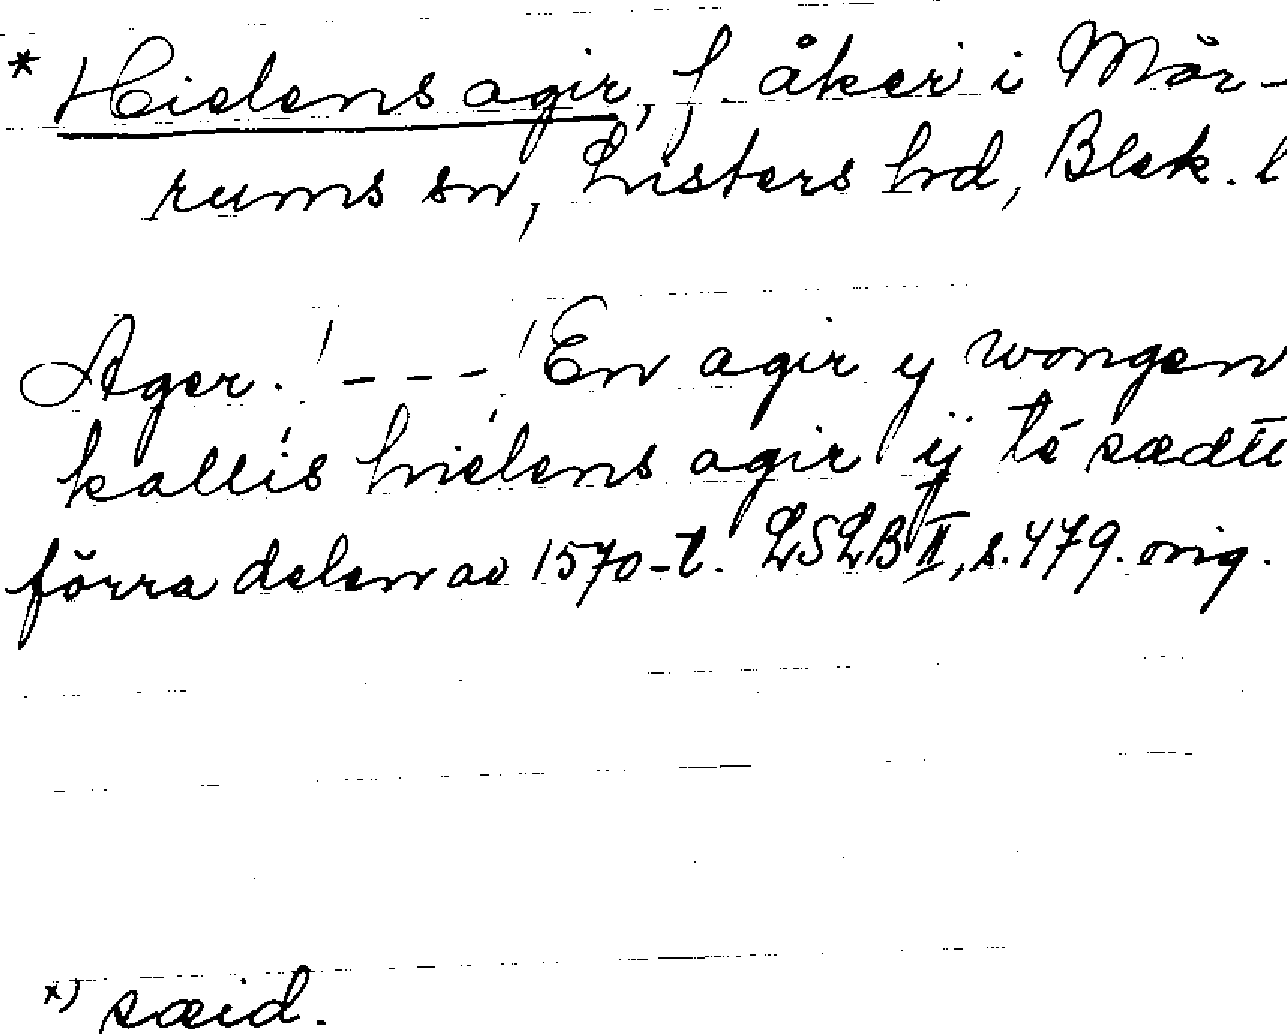 * Hielens agir, f. åker i Mör-
rums sn, Listers hd, Blek. l
Ager. ' - - - ' En agir y wongen
kallis hielens agir ij té sædtt
förra delen av 1570-t. LSLB II, s. 479. orig.
x) sæid.